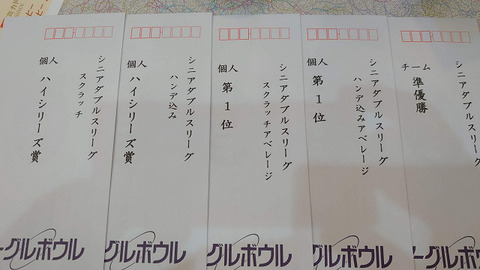 シニアダブルスリーグ
スクラッチ
個人
ハイシリーズ賞
ーグルボウル
シニアダブルスリーグ
ハンデ込み
個人
ハイシリーズ賞
グルボウル
シニアダブルスリーグ
スクラッチアベレージ
個人
第1位
グルボウル
シニアダブルスリーグ
ハンデ込みアベレージ
個人
第1位
グルボウル
シニアダブルスリーグ
チーム
準優勝
ーグルボウル